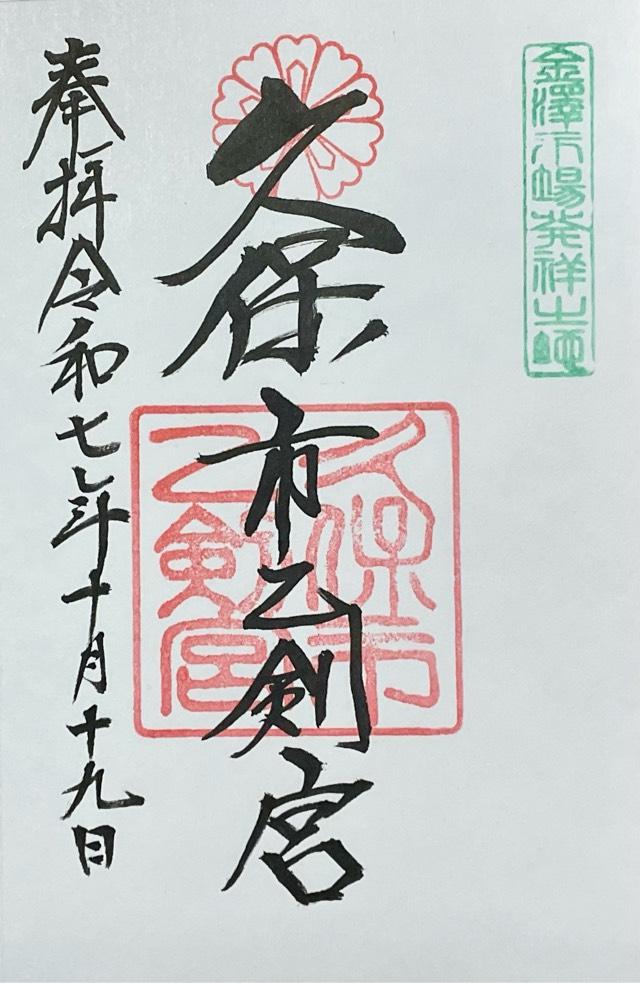 金澤市場発祥之地
久保市乙剣宮
久保市
乙剣宮
奉拝令和七年十月十九日